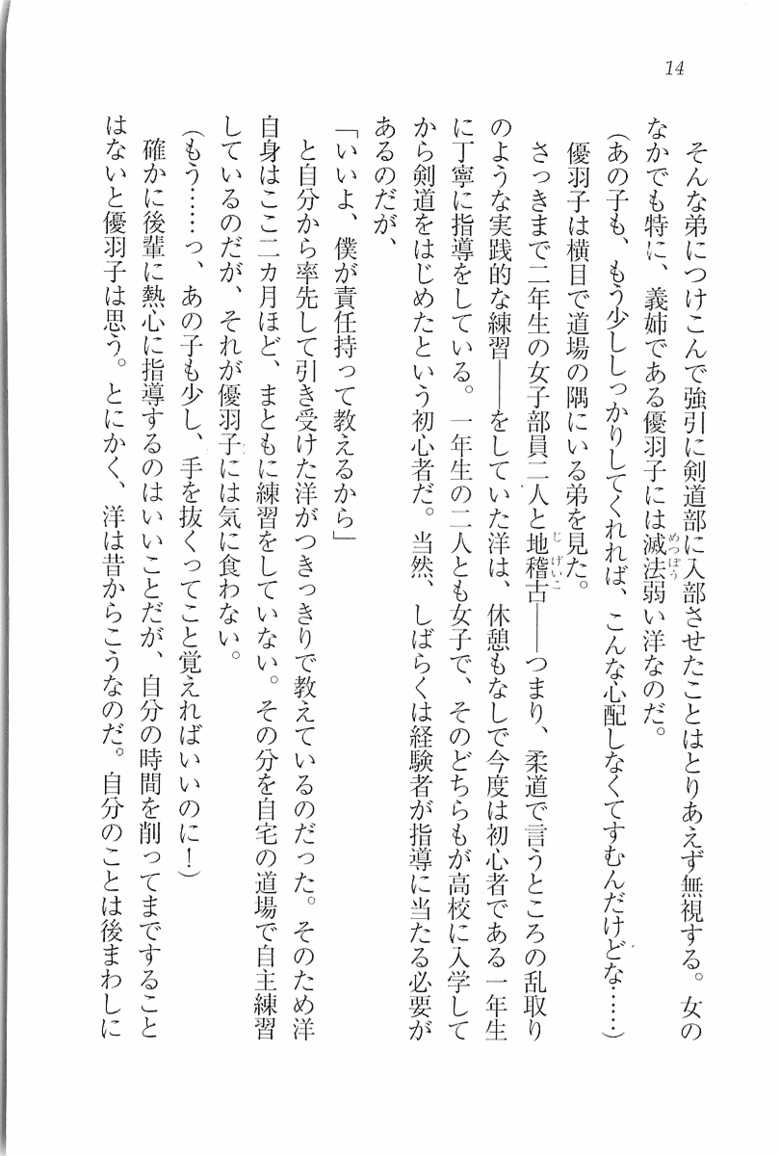 14
そんな弟につけこんで強引に剣道部に入部させたことはとりあえず無視する。女の
なかでも特に、義姉である優羽子には滅法弱い洋なのだ。
めつぽう
(あの子も、もう少ししっかりしてくれれば、こんな心配しなくてすむんだけどな……)
優羽子は横目で道場の隅にいる弟を見た。
さっきまで二年生の女子部員二人と地稽古——つまり、柔道で言うところの乱取り
じげいこ
のような実践的な練習——をしていた洋は、休憩もなしで今度は初心者である一年生
に丁寧に指導をしている。一年生の二人とも女子で、そのどちらもが高校に入学して
から剣道をはじめたという初心者だ。当然、しばらくは経験者が指導に当たる必要が
あるのだが、
「いいよ、僕が責任持って教えるから」
と自分から率先して引き受けた洋がつきっきりで教えているのだった。そのため洋
自身はここ二カ月ほど、まともに練習をしていない。その分を自宅の道場で自主練習
しているのだが、それが優羽子には気に食わない。
(もう……っ、あの子も少し、手を抜くってこと覚えればいいのに！)
確かに後輩に熱心に指導するのはいいことだが、自分の時間を削ってまですること
はないと優羽子は思う。とにかく、洋は昔からこうなのだ。自分のことは後まわしに